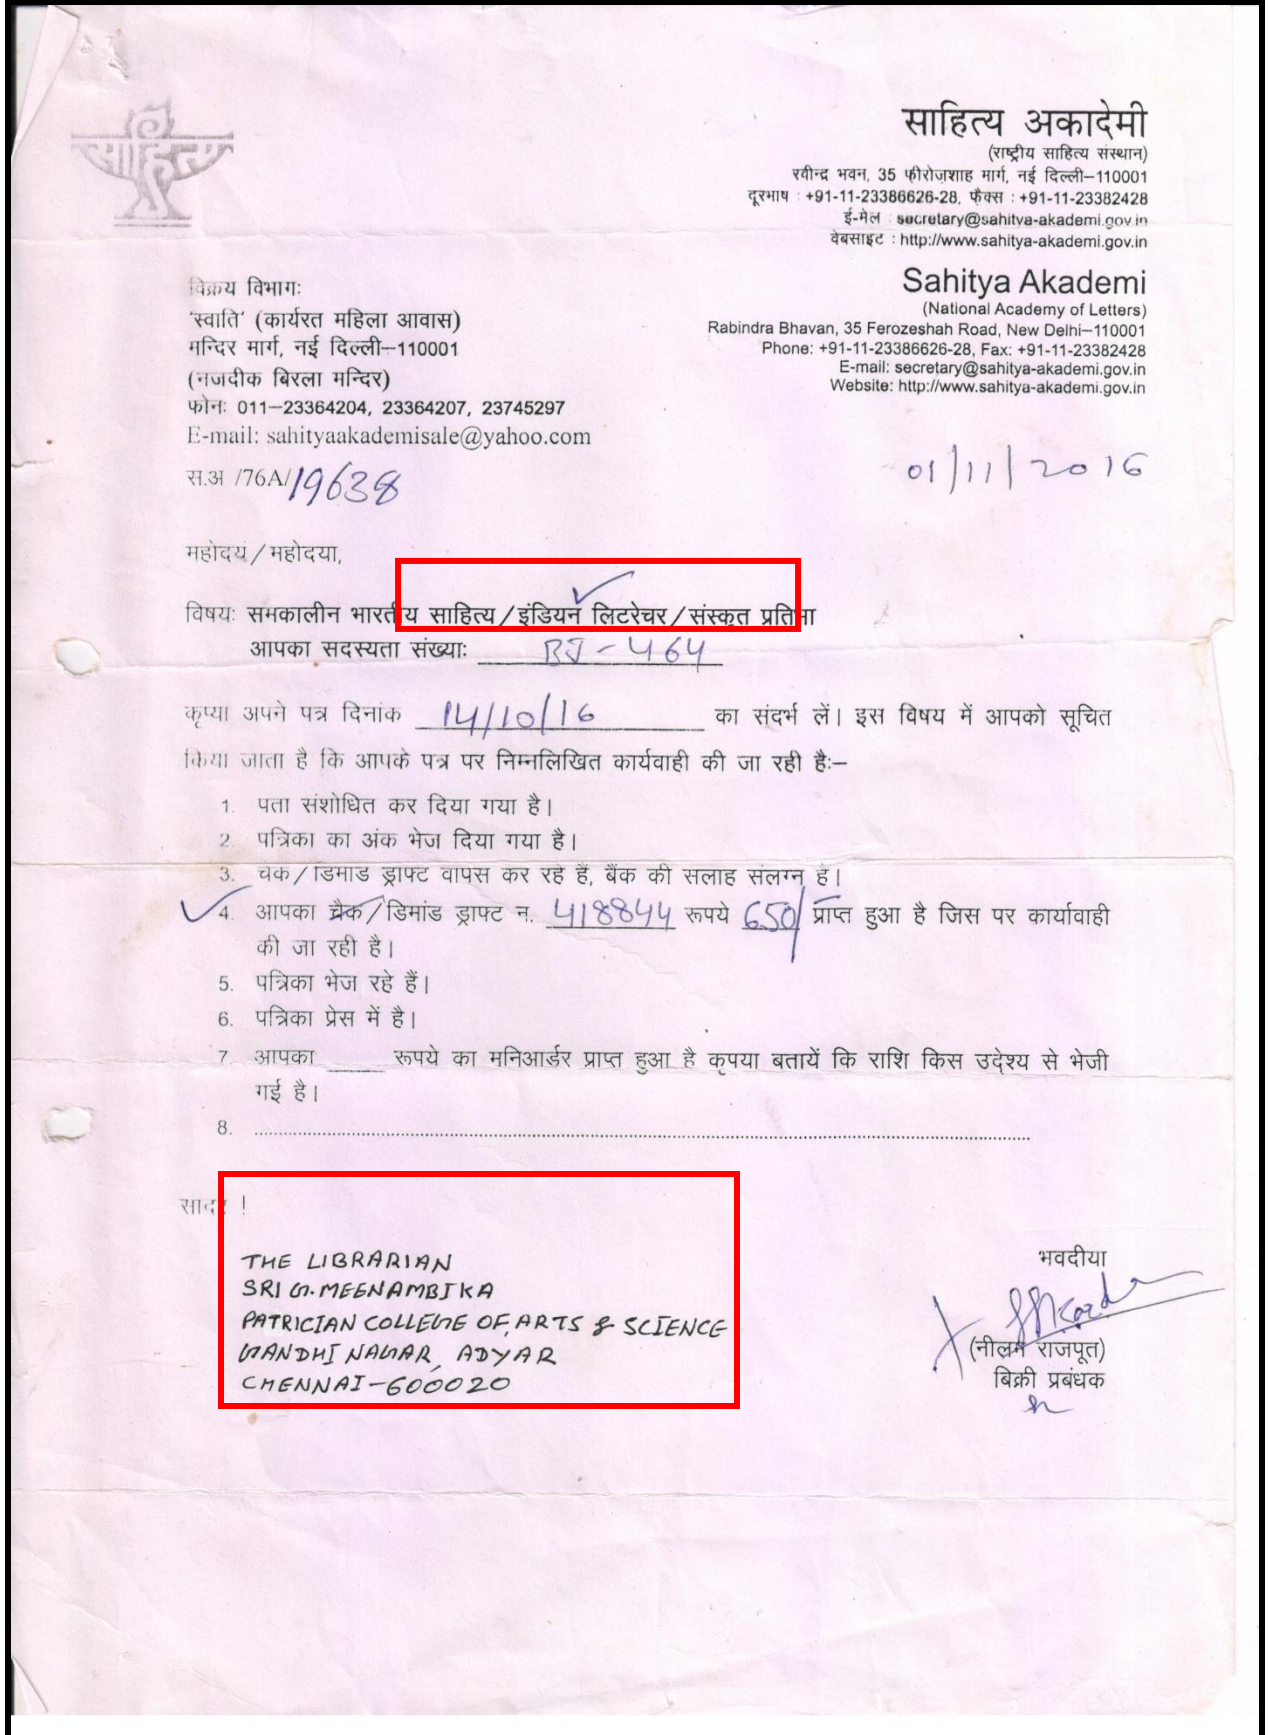 साहित्य
साहित्य अकादेमी
(राष्ट्रीय साहित्य संस्थान)
रवीन्द्र भवन, 35 फीरोज़शाह मार्ग, नई दिल्ली–110001
दूरभाष : +91-11-23386626-28, फ़ैक्स : +91-11-23382428
ई-मेल : secretary@sahitya-akademi.gov.in
वेबसाइट : http://www.sahitya-akademi.gov.in
Sahitya Akademi
(National Academy of Letters)
Rabindra Bhavan, 35 Ferozeshah Road, New Delhi–110001
Phone: +91-11-23386626-28, Fax: +91-11-23382428
E-mail: secretary@sahitya-akademi.gov.in
Website: http://www.sahitya-akademi.gov.in
विक्रय विभागः
'स्वाति' (कार्यरत महिला आवास)
मन्दिर मार्ग, नई दिल्ली–110001
(नजदीक बिरला मन्दिर)
फोनः 011–23364204, 23364207, 23745297
E-mail: sahityaakademisale@yahoo.com
स.अ /76A/19638
01/11/2016
महोदय/महोदया,
विषयः समकालीन भारतीय साहित्य/इंडियन लिटरेचर/संस्कृत प्रतिभा
आपका सदस्यता संख्याः BJ-464
कृप्या अपने पत्र दिनांक 14/10/16 का संदर्भ लें। इस विषय में आपको सूचित
किया जाता है कि आपके पत्र पर निम्नलिखित कार्यवाही की जा रही हैः–
1. पता संशोधित कर दिया गया है।
2. पत्रिका का अंक भेज दिया गया है।
3. चेक/डिमांड ड्राफ्ट वापस कर रहे हैं, बैंक की सलाह संलग्न है।
4. आपका चैक/डिमांड ड्राफ्ट न. 418844 रूपये 650/ प्राप्त हुआ है जिस पर कार्यावाही
की जा रही है।
5. पत्रिका भेज रहे हैं।
6. पत्रिका प्रेस में है।
7. आपका ____ रूपये का मनिआर्डर प्राप्त हुआ है कृपया बतायें कि राशि किस उदे्श्य से भेजी
गई है।
8. ........................................
सादर !
THE LIBRARIAN
SRI G. MEENAMBIKA
PATRICIAN COLLEGE OF ARTS & SCIENCE
GANDHI NAGAR, ADYAR
CHENNAI-600020
भवदीया
(नीलम राजपूत)
बिक्री प्रबंधक